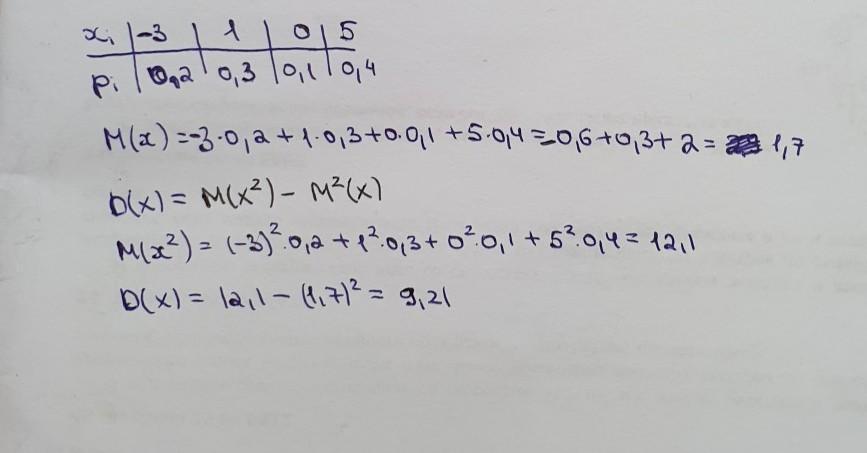 xᵢ | -3 | 1 | 0 | 5
pᵢ | 0,2 | 0,3 | 0,1 | 0,4
M(x) = -3·0,2 + 1·0,3+0·0,1 + 5·0,4 = -0,6+0,3+ 2 = 1,7
D(x) = M(x²) - M²(x)
M(x²) = (-3)²·0,2 + 1²·0,3 + 0²·0,1 + 5²·0,4 = 12,1
D(x) = 12,1 - (1,7)² = 9,21